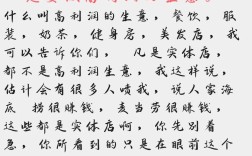 什么叫高利润的生意，餐饮，服
装，奶茶，健身房，美发店，我
可以告诉你们，凡是实体店，
都不是高利润生意，我这样说，
估计会有很多人喷我，说人家海
底捞很赚钱，麦当劳很赚钱，
这些都是实体店啊，你先别着
急，你所看到的只是在眼前这个